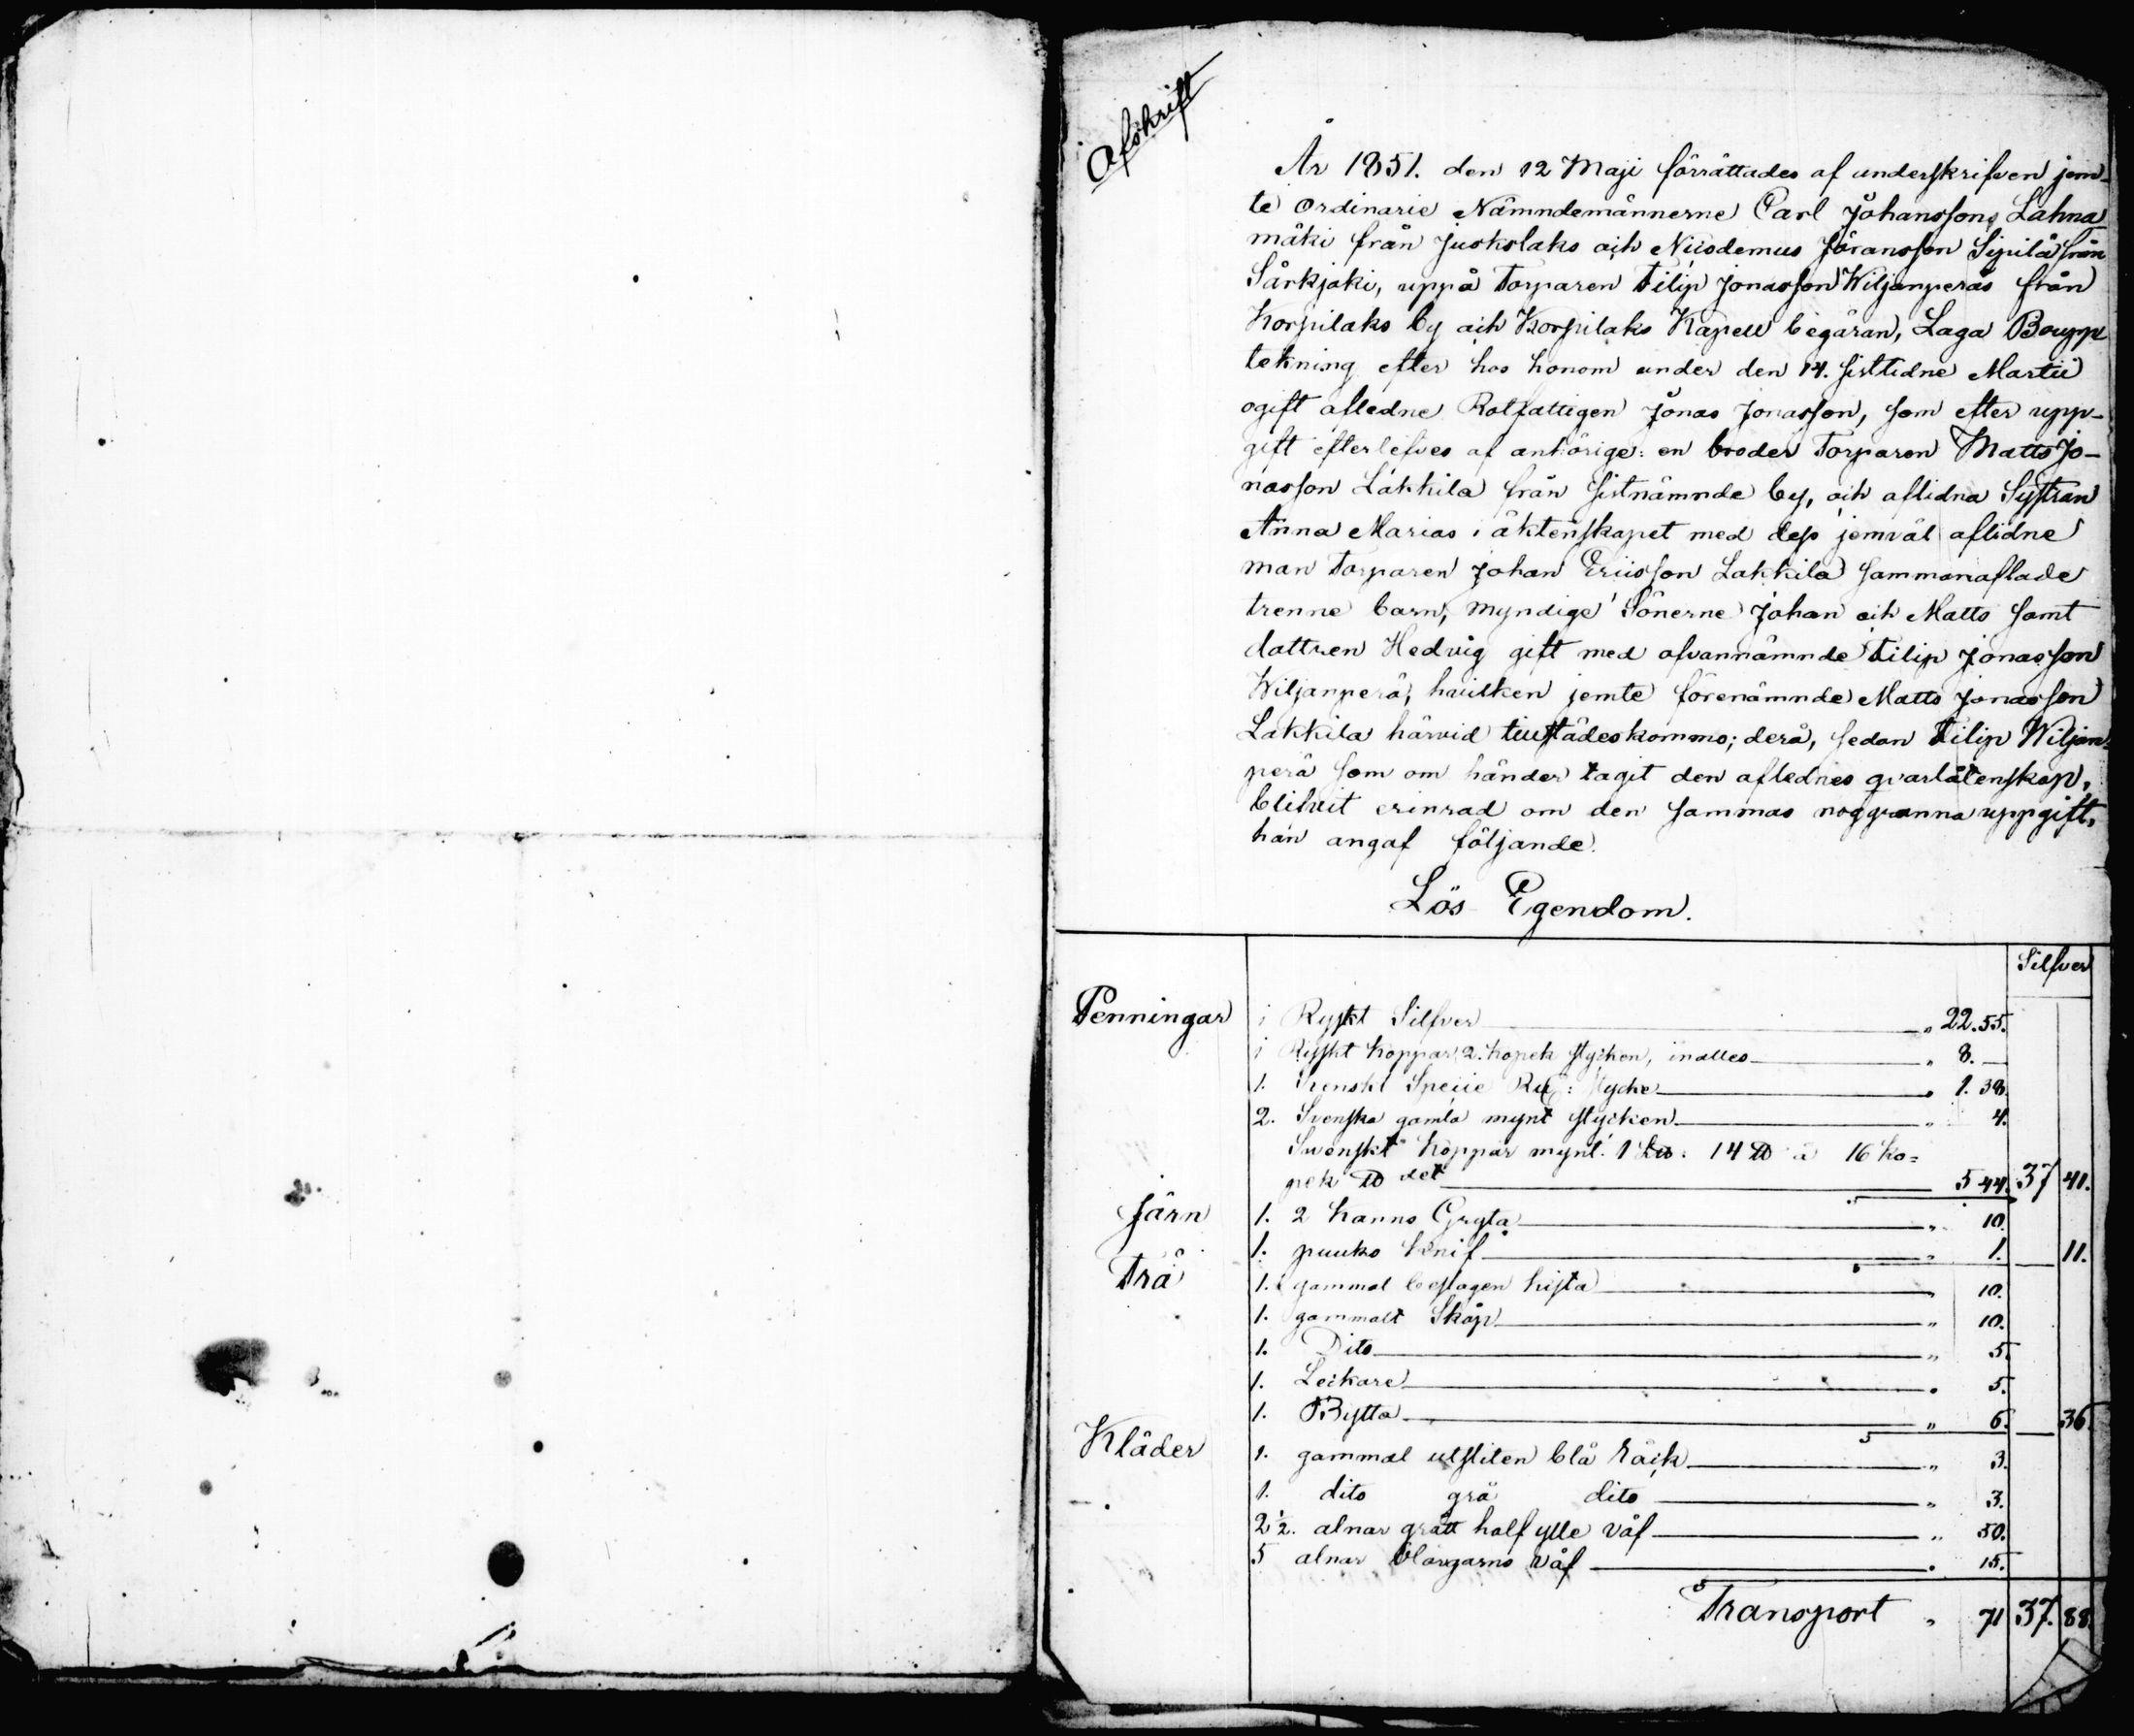 Afskrift
År 1851. den 12 Maji förrättades af underskrifven jem-
te Ordinarie Nämndemännerne Carl Johansson Lahna
mäki från Juokslaks och Nicodemus Jöransson Sipilä från
Särkjoki, uppå Torparen Filip Jonasson Wiljanperäs från
Korpilaks by och Korpilaks Kapell begäran, Laga Boupp
tekning efter hos honom under den 14. sisttidne Martii
ogift afledne Rotfattigen Jonas Jonasson, som efter upp-
gift efterlefves af anhörige: en broder Torparen Matts Jo-
nasson Lakkila från sistnämnde by, och aflidna Systran
Anna Marias i äktenskapet med dess jemväl aflidne
man Torparen Johan Ericsson Lakkila sammanaflade
trenne barn, myndige Sönerne Johan och Matts samt
dottren Hedvig gift med ofvannämnde Filip Jonasson
Wiljanperä, hvilken jemte förenämnde Matts Jonasson
Lakkila härvid tillstädeskommo; derå, sedan Filip Wiljan-
perä som om händer tagit den aflednes qvarlåtenskap,
blifvit erinrad om den sammas noggranna uppgift,
han angaf följande.
Lös Egendom.
Silfver
Penningar i Ryskt Silfver " 22.55.
i Ryskt Koppar, 2. kopek stycken, inalles " 8. —
1. Svenskt Specie stycke " 1. 38.
2. Svenska gamla mynt stycken " 4.
Svenskt Koppar mynt. 1 14 ℔ à 16 ko=
pek ℔ det 5 44. 37 41.
Järn 1. 2 kanns Gryta " 10.
1. puuko knif " 1. — 11.
Trä 1. gammal beslagen kista " 10.
1. gammalt Skåp " 10.
1. Dito " 5.
1. Leikare " 5.
1. Bytta " 6. — 36.
Kläder 1. gammal utsliten blå råck " 3.
1. dito grå dito " 3.
2 1/2. alnar grått half ylle väf " 50.
5 alnar blårgarns väf " 15.
Transport " 71 37. 88.